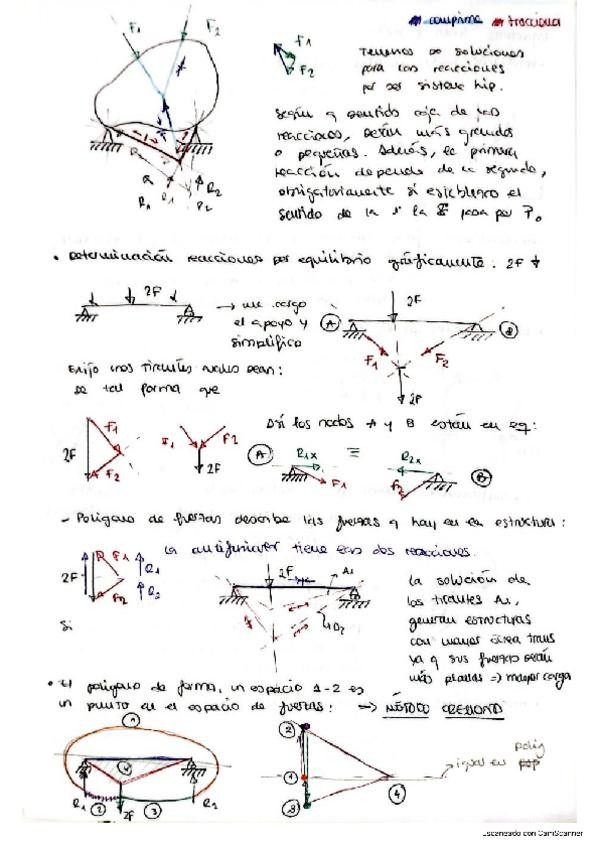 comprime tracciona
F1 F2
F1
F2
Tenemos ∞ soluciones
para las reacciones
por ser sistema hip.
Según q sentido coja de las
reacciones, serán más grandes
o pequeñas. Además, la primera
reacción depende de la segunda,
obligatoriamente si establezco el
sentido de la 1ª la 2ª pasa por P.
R1 R1 P2 R2
• Determinación reacciones por equilibrio gráficamente. 2F
2F
→ me cargo
el apoyo y
simplifico
2F
A B
F1 F2
2F
Elijo unos tirantes
de tal forma que
Así los nodos A y B están en eq:
2F F1 F2
F1 F2 2F
A R1x F1 ≡ R2x F2 B
- Polígono de fuerzas describe las fuerzas q hay en la estructura:
La antifunicular tiene las dos reacciones.
2F F1 F2 R1 R2
2F A1 A2
La solución de
los tirantes A1,
generan estructuras
con mayor área trans
ya q sus fuerzas serán
más planas => mayor carga
Si
• El polígono de forma, un espacio 1-2 es
un punto en el espacio de fuerzas: → MÉTODO CREMONA
1
4
R1 2 2F 3 R2
2
1
3
4
igual en
polig
Escaneado con CamScanner